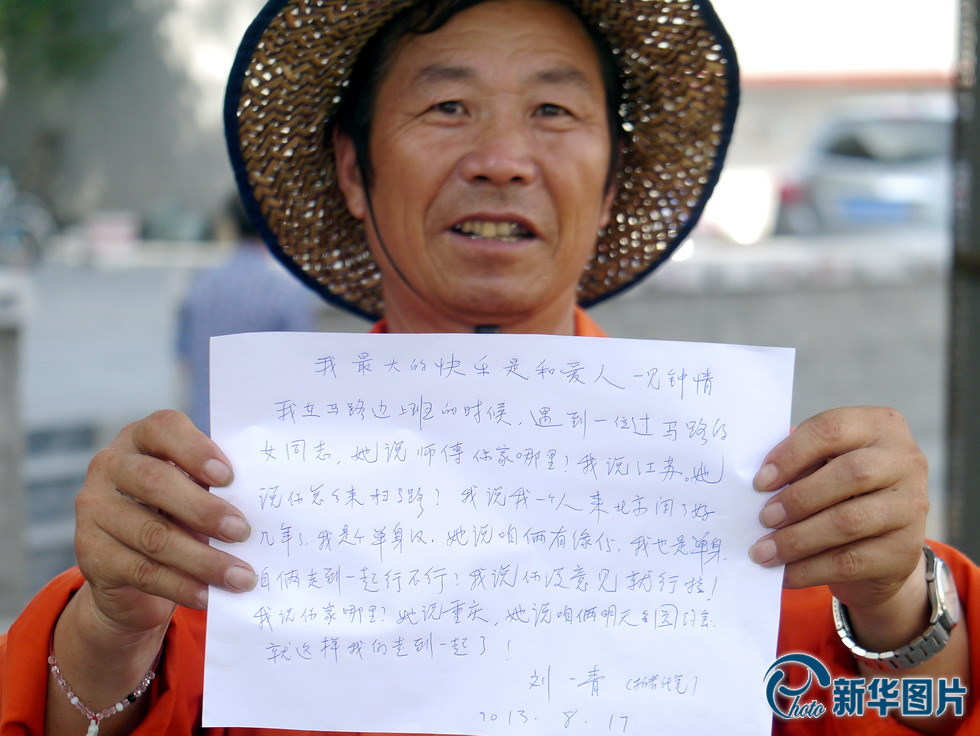 我最大的快乐是和爱人一见钟情
我在马路边上班的时候,遇到一位过马路的
女同志,她说师傅你家哪里?我说江苏。她
说你怎么来扫马路?我说我一个人来北京闯了好
几年了,我是个单身汉,她说咱俩有缘份,我也是单身
咱俩走到一起行不行?我说你没意见就行啦!
我说你家哪里?她说重庆,她说咱俩明天公园约会
就这样我们走到一起了!
刘一青
2013.8.17
Photo 新华图片